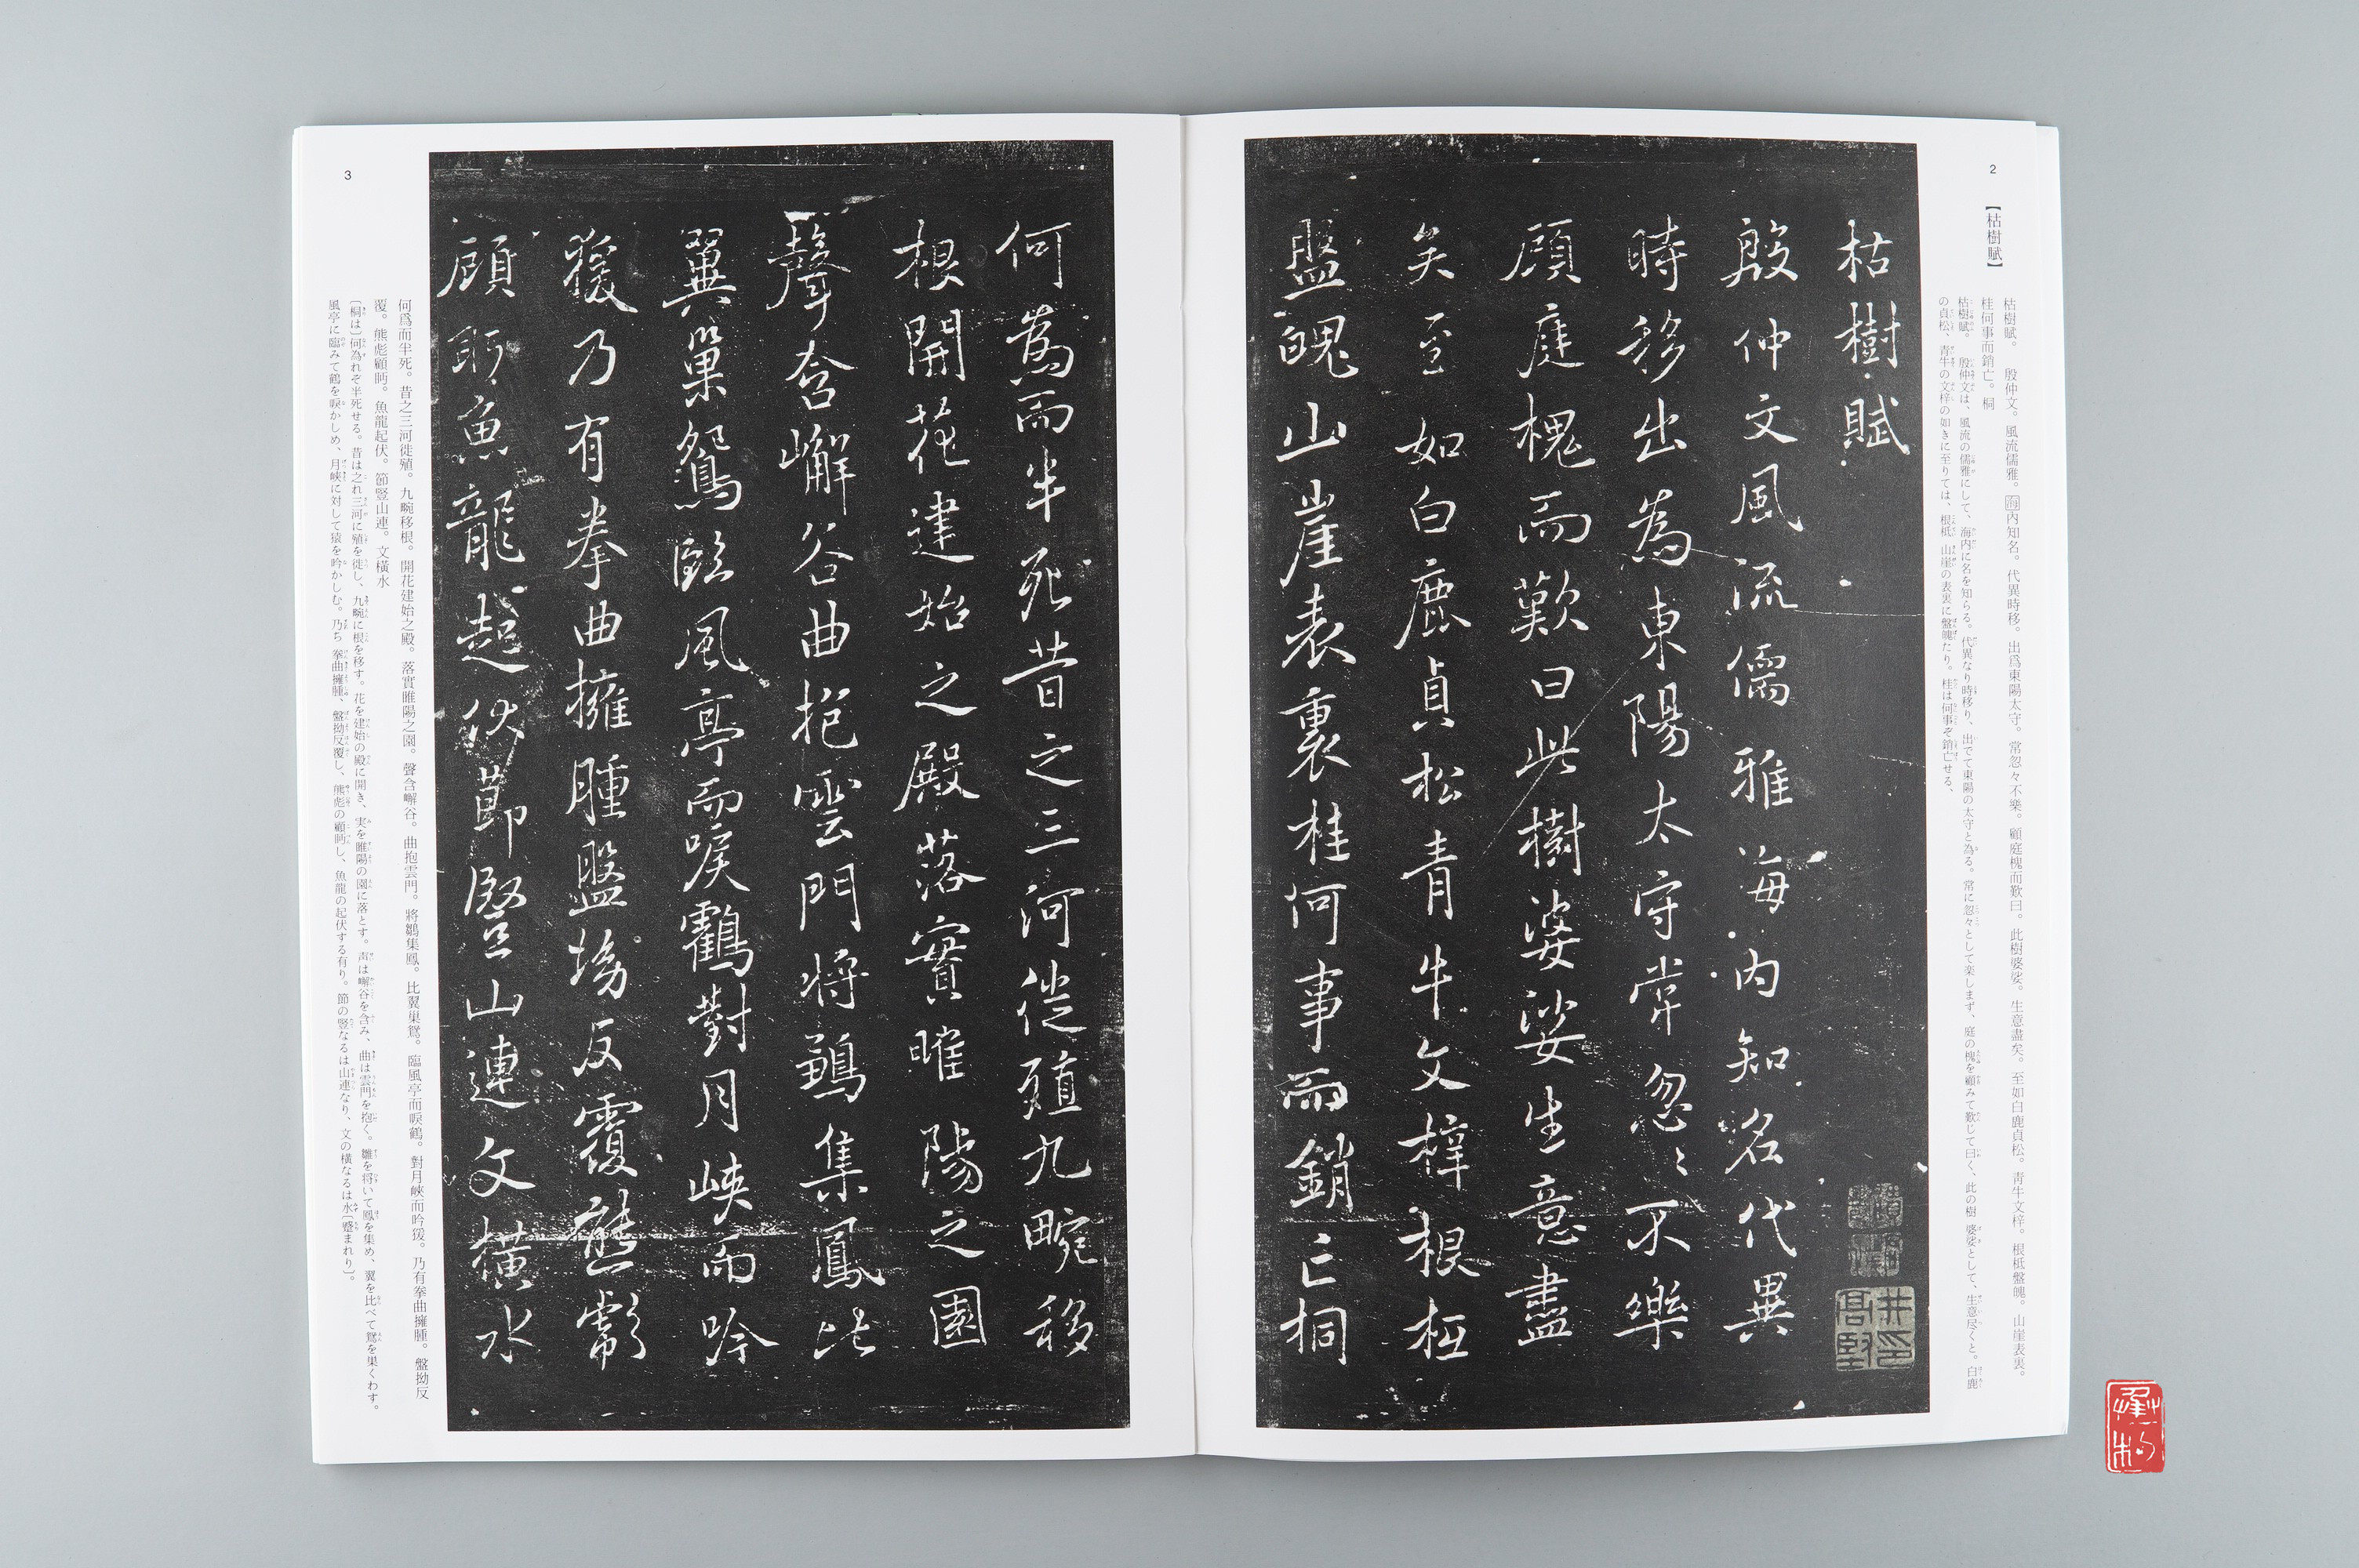 2
【枯樹賦】
枯樹賦。 殷仲文。風流儒雅。海内知名。代異時移。出爲東陽太守。常忽々不樂。顧庭槐而歎曰。此樹婆娑。生意盡矣。至如白鹿貞松。靑牛文梓。根柢盤魄。山崖表裏。
桂何事而銷亡。桐
枯樹賦。 殷仲文は、風流の儒雅にして、海内に名を知らる。代異なり時移り、出でて東陽の太守と為る。常に忽々として楽しまず、庭の槐を顧みて歎じて曰く、此の樹 婆娑として、生意尽くと。白鹿
の貞松、青牛の文梓の如きに至りては、根柢 山崖の表裏に盤魄たり。桂は何事ぞ銷亡せる、
枯樹賦
殷仲文風流儒雅海内知名代異
時移出為東陽太守常忽々不樂
顧庭槐而歎曰此樹婆娑生意盡
矣至如白鹿貞松青牛文梓根柢
盤魄山崖表裏桂何事而銷亡桐
井印高堅
何為而半死昔之三河徙殖九畹移
根開花建始之殿落實睢陽之園
聲含嶰谷曲抱雲門将鶵集鳳比
翼巢鴛臨風亭而唳鶴對月峽而吟
猨乃有拳曲擁腫盤坳反覆熊彪
顧眄魚龍起伏節竪山連文橫水
3
何爲而半死。昔之三河徙殖。九畹移根。開花建始之殿。落實睢陽之園。聲含嶰谷。曲抱雲門。將鶵集鳳。比翼巢鴛。臨風亭而唳鶴。對月峽而吟猨。乃有拳曲擁腫。盤拗反
覆。熊彪顧眄。魚龍起伏。節竪山連。文橫水
〔桐は〕何為れぞ半死せる。昔は之れ三河に殖を徙し、九畹に根を移す。花を建始の殿に開き、実を睢陽の園に落とす。声は嶰谷を含み、曲は雲門を抱く。雛を将いて鳳を集め、翼を比べて鴛を巣くわす。
風亭に臨みて鶴を唳かしめ、月峡に対して猿を吟かしむ。乃ち 拳曲擁腫、盤拗反覆し、熊彪の顧眄し、魚龍の起伏する有り。節の竪なるは山連なり、文の横なるは水〔蹙まれり〕。